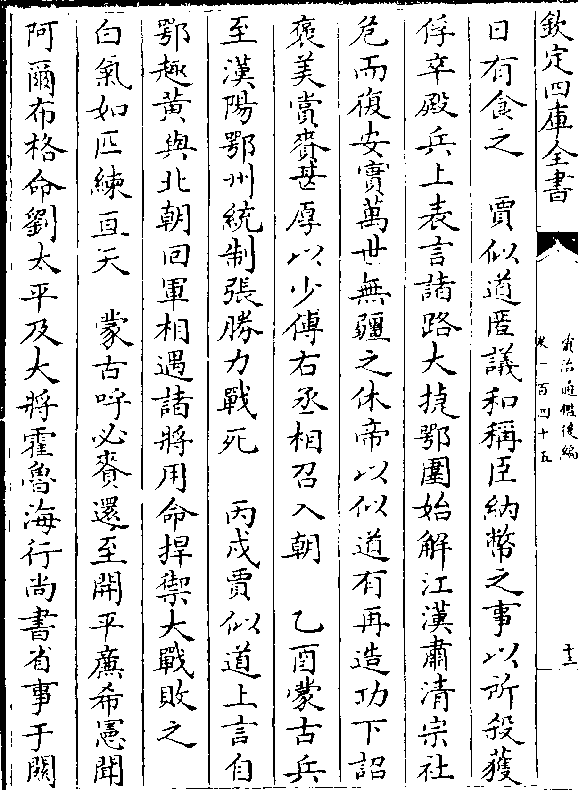 欽定四庫全書
資治通鑑後編
卷一百四十五
十三
日有食之　賈似道匿議和稱臣納幣之事以所殺獲
俘卒殿兵上表言諸路大捷鄂圍始解江漢肅清宗社
危而復安實萬世無疆之休帝以似道有再造功下詔
褒美賞賚甚厚以少傅右丞相召入朝　乙酉蒙古兵
至漢陽鄂州統制張勝力戰死　丙戌賈似道上言自
鄂趣黄與北朝回軍相遇諸將用命捍禦大戰敗之
白氣如匹練亘天　蒙古呼必賚還至開平亷希憲聞
阿爾布格命劉太平及大將霍魯海行尚書省事于關